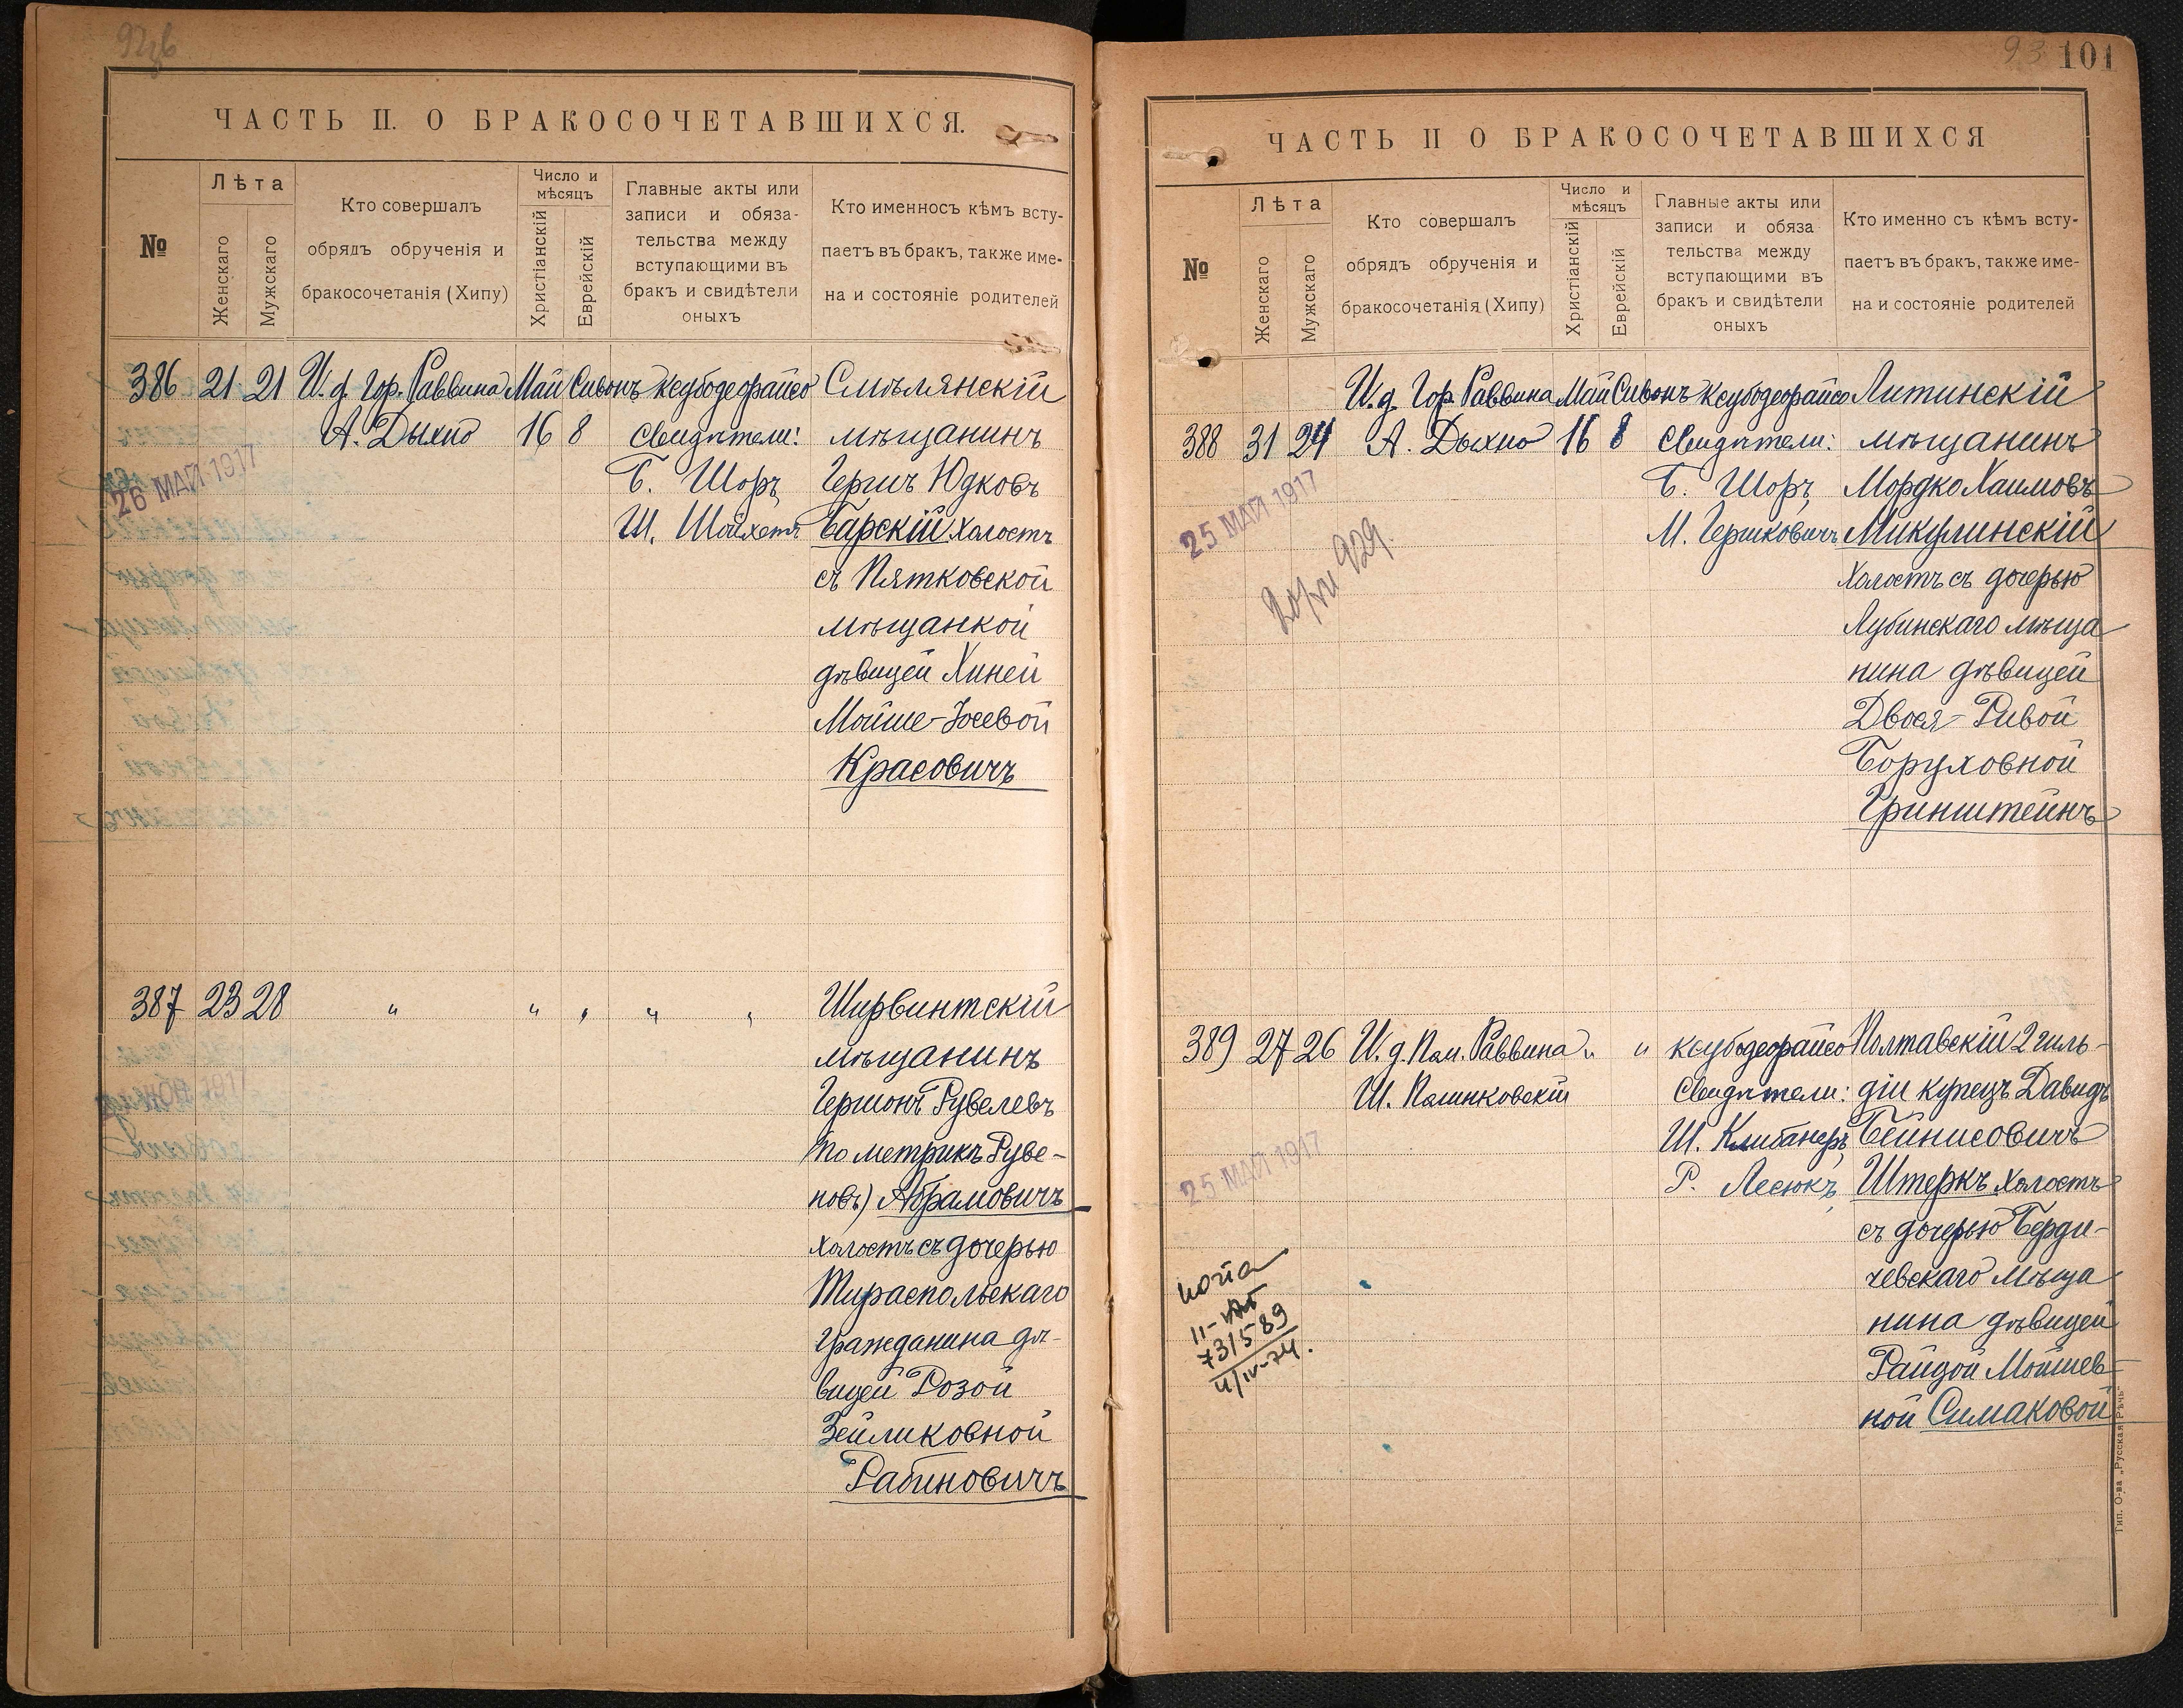 ЧАСТЬ II. О БРАКОСОЧЕТАВШИХСЯ.
№
Лѣта
Женскаго
Мужскаго
Кто совершалъ
обрядъ обрученія и
бракосочетанія (Хипу)
Число и
мѣсяцъ
Христіанскій
Еврейскій
Главные акты или
записи и обяза-
тельства между
вступающими въ
бракъ и свидѣтели
оныхъ
Кто именносъ кѣмъ всту-
паетъ въ бракъ, также име-
на и состояніе родителей
386 21 21 И. д. Гор. Раввина Май Сивонъ Ксубодеорайсо Смѣлянскій
А. Дыхно 16 8 Свидѣтели: мѣщанинъ
26 МАЙ 1917
Б. Шоръ, Гершъ Юдковъ
Ш. Шойхетъ Барскій холостъ
съ Пятковской
мѣщанкой
дѣвицей Хиней
Мойше-Іосевой
Красовичъ
387 23 28 " " " " " Ширвинтскій
мѣщанинъ
Гершонъ Рувелевъ
(по метрикѣ Руве-
новъ) Абрамовичъ
холостъ съ дочерью
Тираспольскаго
гражданина дѣ-
вицей Розой
Зейликовной
Рабиновичъ
93 101
ЧАСТЬ II О БРАКОСОЧЕТАВШИХСЯ
№
Лѣта
Женскаго
Мужскаго
Кто совершалъ
обрядъ обрученія и
бракосочетанія (Хипу)
Число и
мѣсяцъ
Христіанскій
Еврейскій
Главные акты или
записи и обяза
тельства между
вступающими въ
бракъ и свидѣтели
оныхъ
Кто именно съ кѣмъ всту-
паетъ въ бракъ, также име-
на и состояніе родителей
И. д. Гор. Раввина Май Сивонъ Ксубодеорайсо Литинскій
388 31 24 А. Дыхно 16 8 Свидѣтели: мѣщанинъ
25 МАЙ 1917
Б. Шоръ, Мордко Хаимовъ
М. Гершковичъ Микулинскій
холостъ съ дочерью
Лубинскаго мѣща
нина дѣвицей
Двося-Ривой
Боруховной
Гринштейнъ
389 27 26 И. д. Пом. Раввина " " Ксубодеорайсо Полтавскій 2 гиль-
Ш. Полинковскій Свидѣтели: діи купецъ Давидъ
Ш. Клибанеръ, Бейнисовичъ
25 МАЙ 1917
Р. Лесюкъ, Штеркъ холостъ
съ дочерью Берди-
чевскаго мѣща
нина дѣвицей
Райзой Мойшев-
ной Симаковой
копia
731589
4/IV-74.
Тип. О-ва „Русская Рѣчь"